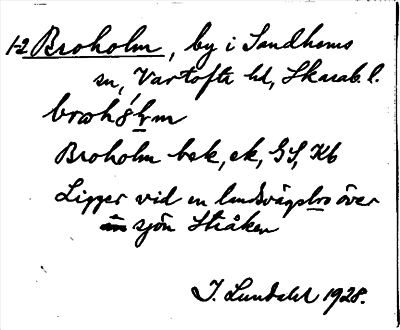 1-2 Broholm, by i Sandhems
sn, Vartofta hd, Skarab. l.
Broholm bek, ek, GS, Kb
Ligger vid en landsvägsbro över
sjön Stråken
J. Lundahl 1928.